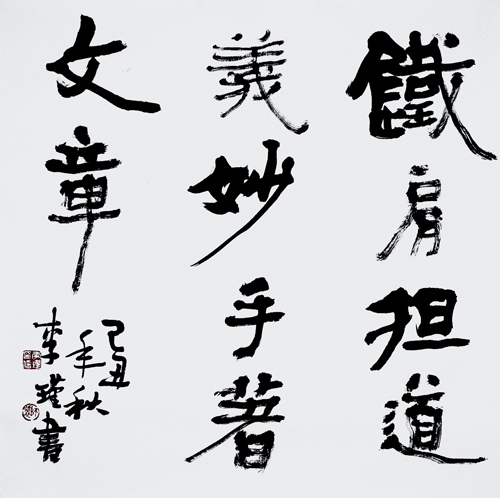 鐵肩担道
義妙手著
文章
己丑
年秋
李瑾書